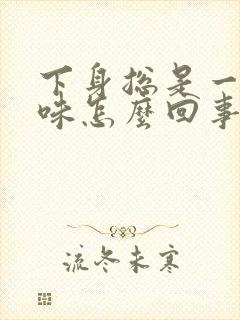 下身揔是一
味怎麼回事
流冬未寒